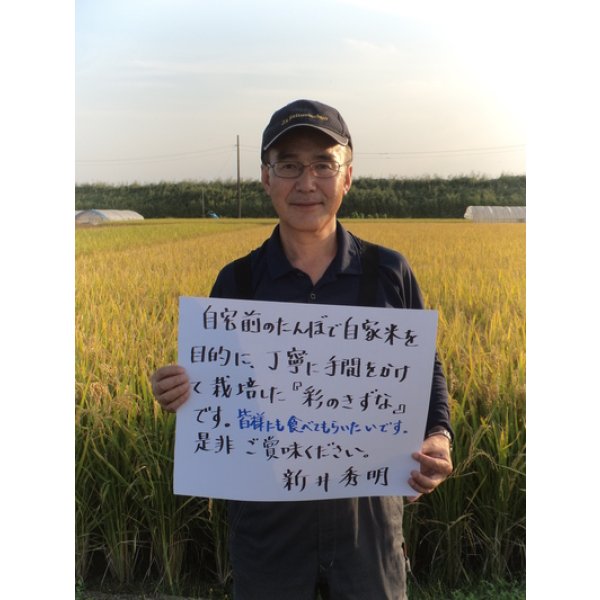 自宅前のたんぼで自家米を
目的に、丁寧に手間をかけ
て栽培した『彩のきずな』
です。皆様にも食べてもらいたいです。
是非ご賞味ください。
新井秀明